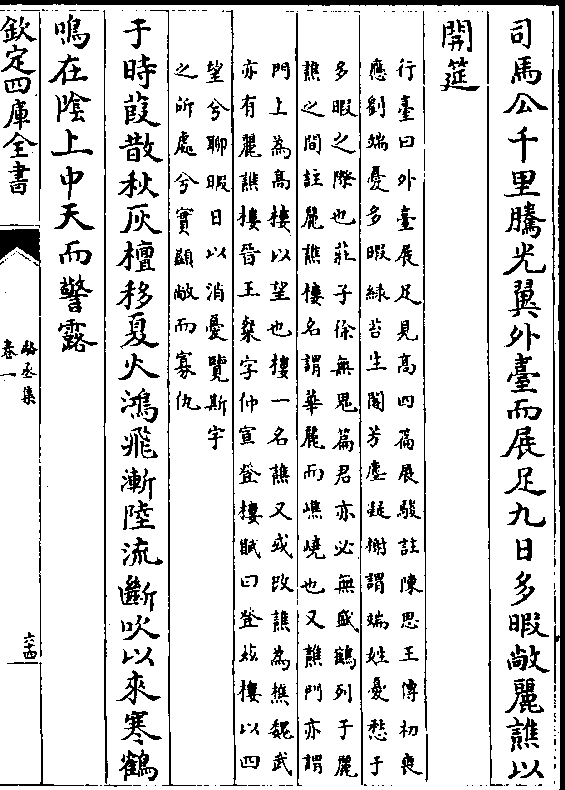 司馬公千里騰光翼外臺而展足九日多暇敞麗譙以
開筵
行臺曰外臺展足見髙四篇展駿註陳思王傳初喪
應劉端憂多暇緑苔生閣芳塵凝榭謂端姓憂愁于
多暇之際也莊子徐無鬼篇君亦必無盛鶴列于麗
譙之間註麗譙樓名謂華麗而嶕嶢也又譙門亦謂
門上為髙樓以望也樓一名譙又或改譙為樵魏武
亦有麗譙樓晉王粲字仲宣登樓賦曰登兹樓以四
望兮聊暇日以消憂覽斯宇
之所處兮實顯敞而寡仇
于時葭散秋灰檀移夏火鴻飛漸陸流斷吹以來寒鶴
鳴在陰上中天而警露
欽定四庫全書
駱丞集
卷一
六十四